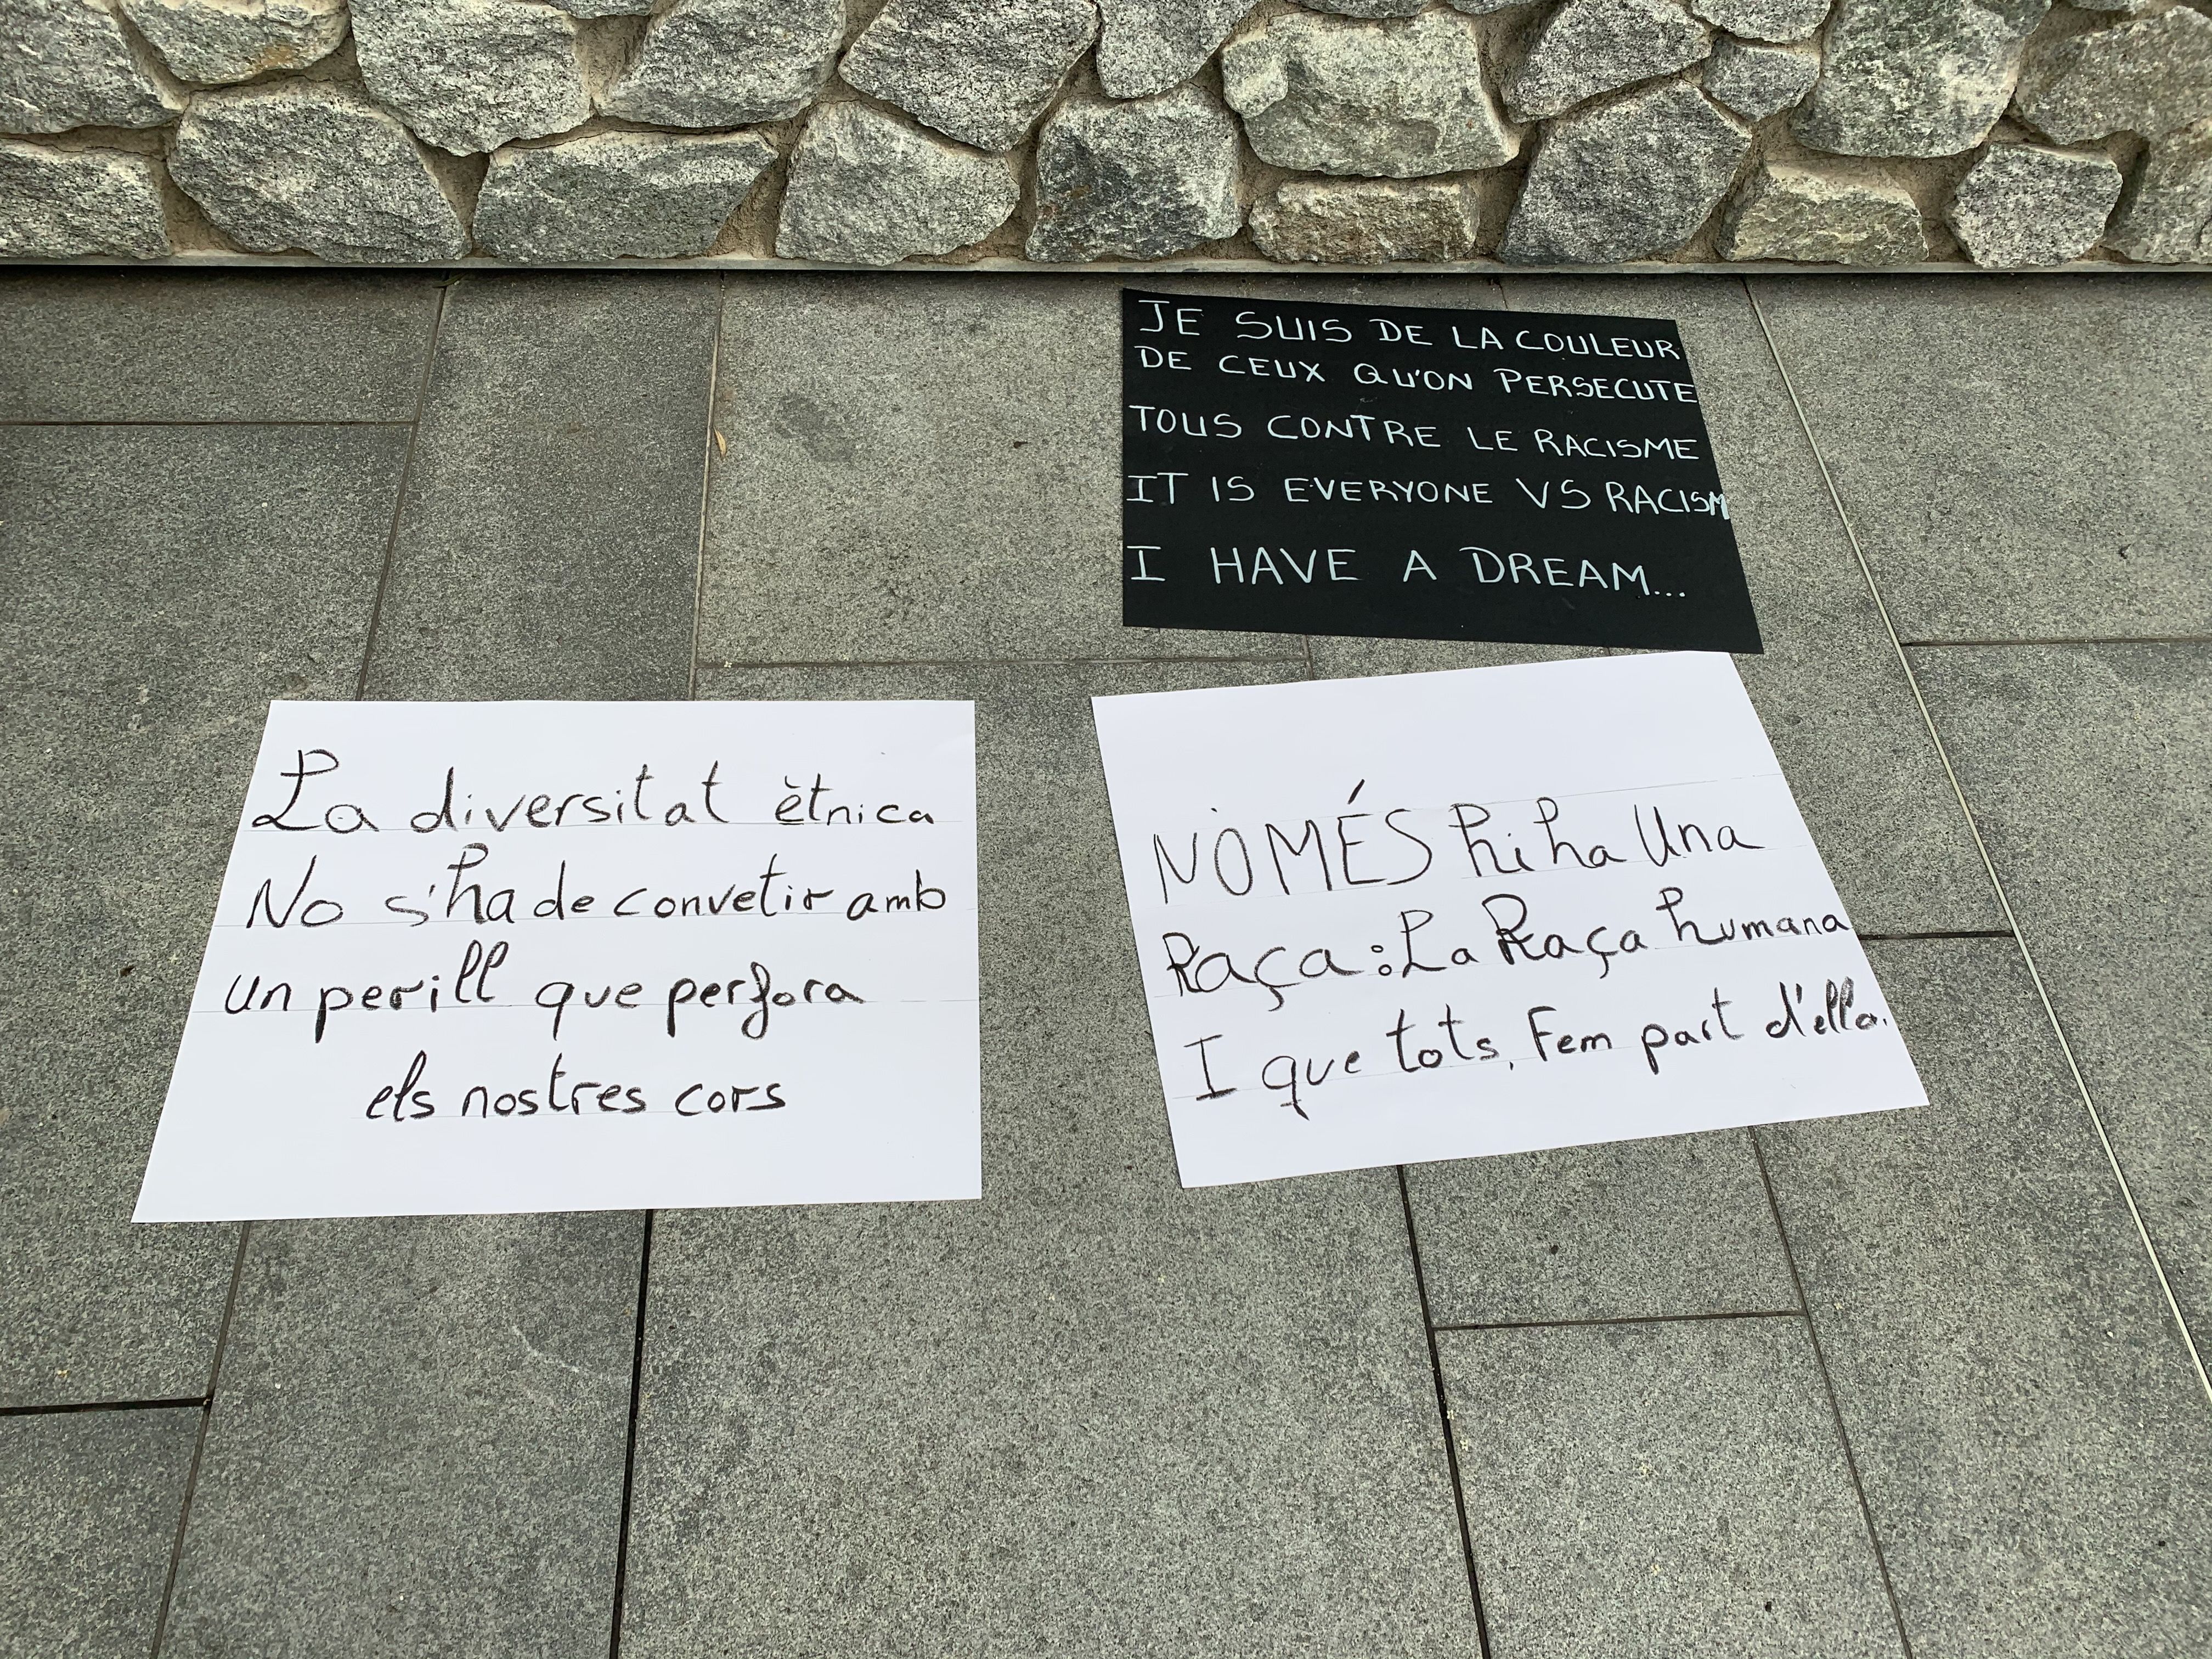 JE SUIS DE LA COULEUR
DE CEUX QU'ON PERSECUTE
TOUS CONTRE LE RACISME
IT IS EVERYONE VS RACISM
I HAVE A DREAM...
La diversitat ètnica
No s'ha de convetir amb
un perill que perfora
els nostres cors
NOMÉS hi ha Una
Raça: La Raça humana
I que tots, Fem part d'ella.